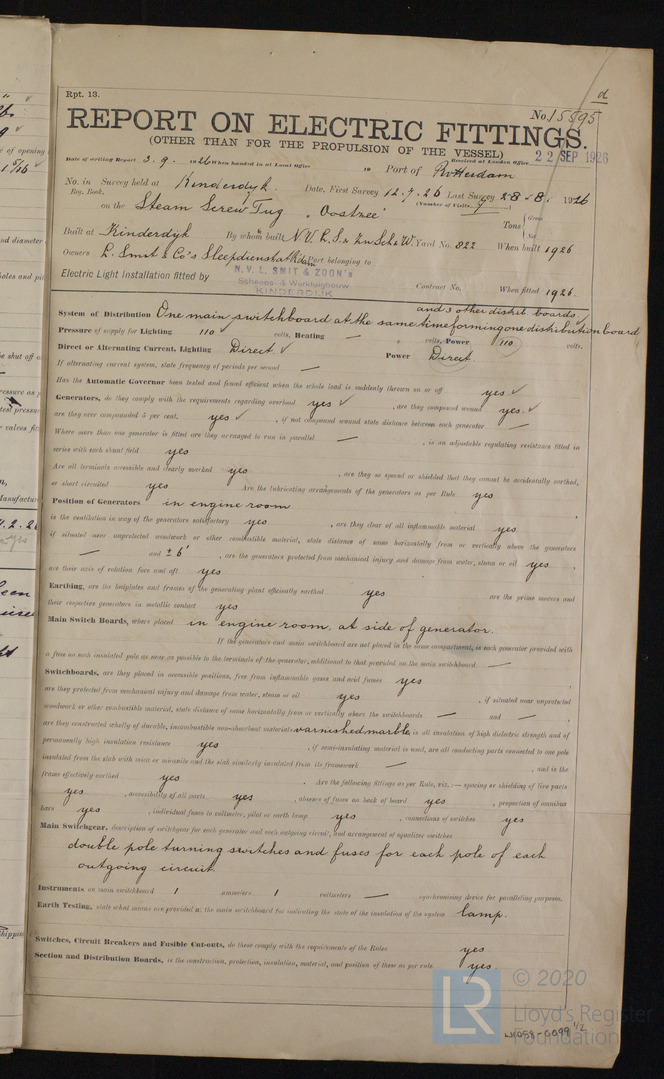 Rpt. 13.
d
No. 15595
REPORT ON ELECTRIC FITTINGS.
(OTHER THAN FOR THE PROPULSION OF THE VESSEL)
Received at London Office 22 SEP 1926
Date of writing Report 3.9. 1926 When handed in at Local Office 19 Port of Rotterdam
No. in Survey held at Kinderdyk. Date, First Survey 12.7.26 Last Survey 28.8. 1926
Reg. Book. (Number of Visits 7)
on the Steam Screw Tug "Oostzee" Tons Gross
Net
Built at Kinderdyk By whom built N.V. L.S. & Zn Sch & W. Yard No. 922 When built 1926
Owners L. Smit & Co's Sleepdienst a/Rdam Port belonging to
Electric Light Installation fitted by N.V. L. SMIT & ZOON's
Scheeps- & Werktuigbouw
KINDERDIJK
Contract No. When fitted 1926.
and 3 other distrib. boards
System of Distribution One main switchboard at the same time forming one distribution board
Pressure of supply for Lighting 110 volts, Heating — volts, Power 110 volts.
Direct or Alternating Current, Lighting Direct Power Direct
If alternating current system, state frequency of periods per second —
Has the Automatic Governor been tested and found efficient when the whole load is suddenly thrown on or off yes
Generators, do they comply with the requirements regarding overload yes, are they compound wound yes
are they over compounded 5 per cent. yes, if not compound wound state distance between each generator —
Where more than one generator is fitted are they arranged to run in parallel —, is an adjustable regulating resistance fitted in
series with each shunt field yes
Are all terminals accessible and clearly marked yes, are they so spaced or shielded that they cannot be accidentally earthed,
or short circuited yes Are the lubricating arrangements of the generators as per Rule yes
Position of Generators in engine room
is the ventilation in way of the generators satisfactory yes, are they clear of all inflammable material yes
if situated near unprotected woodwork or other combustible material, state distance of same horizontally from or vertically above the generators
— and ± 6', are the generators protected from mechanical injury and damage from water, steam or oil yes,
are their axis of rotation fore and aft yes
Earthing, are the bedplates and frames of the generating plant efficiently earthed yes are the prime movers and
their respective generators in metallic contact yes
Main Switch Boards, where placed in engine room, at side of generator.
If the generators and main switchboard are not placed in the same compartment, is each generator provided with
a fuse on each insulated pole as near as possible to the terminals of the generator, additional to that provided on the main switchboard —
Switchboards, are they placed in accessible positions, free from inflammable gases and acid fumes yes,
are they protected from mechanical injury and damage from water, steam or oil yes, if situated near unprotected
woodwork or other combustible material, state distance of same horizontally from or vertically above the switchboards — and —,
are they constructed wholly of durable, incombustible non-absorbent materials varnished marble, is all insulation of high dielectric strength and of
permanently high insulation resistance yes, if semi-insulating material is used, are all conducting parts connected to one pole
insulated from the slab with mica or micanite and the slab similarly insulated from its framework —, and is the
frame effectively earthed yes. Are the following fittings as per Rule, viz.:— spacing or shielding of live parts
yes, accessibility of all parts yes, absence of fuses on back of board yes, proportion of omnibus
bars yes, individual fuses to voltmeter, pilot or earth lamp yes, connections of switches yes
Main Switchgear, description of switchgear for each generator and each outgoing circuit, and arrangement of equaliser switches
double pole turning switches and fuses for each pole of each
outgoing circuit.
Instruments on main switchboard 1 ammeters 1 voltmeters — synchronising device for paralleling purposes.
Earth Testing, state what means are provided at the main switchboard for indicating the state of the insulation of the system lamp.
Switches, Circuit Breakers and Fusible Cut-outs, do these comply with the requirements of the Rules yes
Section and Distribution Boards, is the construction, protection, insulation, material, and position of these as per rule yes.
© 2020
LR Lloyd's Register
Foundation
W1098-0099 1/2